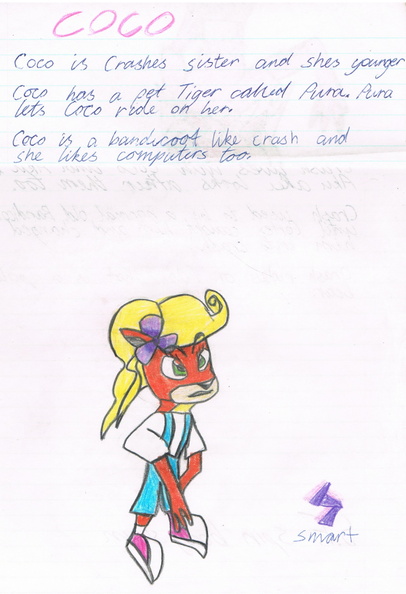 COCO
Coco is Crashes sister and shes younger
Coco has a pet Tiger called Pura. Pura
lets Coco ride on her.
Coco is a bandicoot like crash and
she likes computers too.
smart